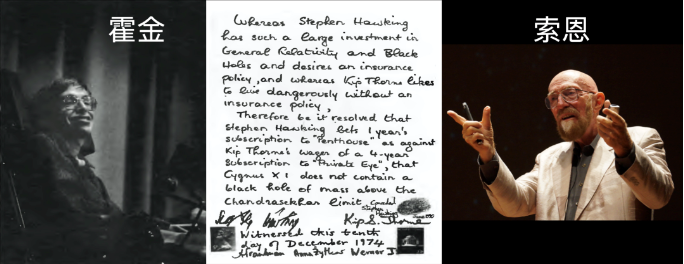 霍金
Whereas Stephen Hawking
has such a large investment in
General Relativity and Black
Holes and desires an insurance
policy, and whereas Kip Thorne likes
to live dangerously without an
insurance policy,
Therefore be it resolved that
Stephen Hawking bets 1 year's
subscription to "Penthouse" as against
Kip Thorne's wager of a 4-year
subscription to "Private Eye", that
Cygnus X 1 does not contain a
black hole of mass above the
Chandrasekhar limit
Kip S. Thorne
Witnessed this tenth
day of December 1974
索恩